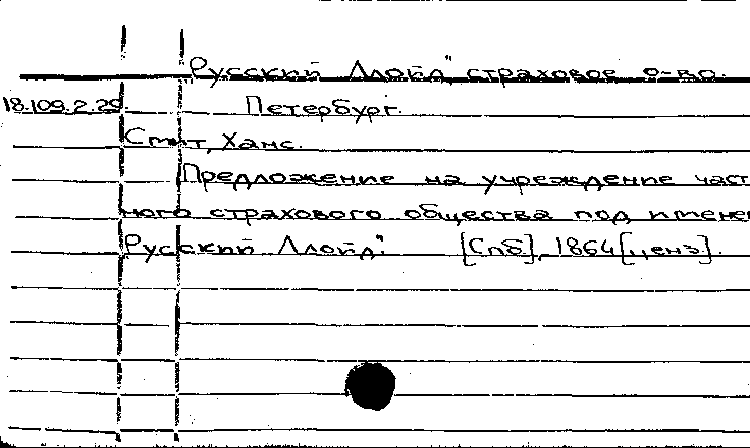 Русский Ллойд", страховое о-во.
18.109.2.29. Петербург.
Смит, Ханс.
Предложение на учреждение част
ного страхового общества под имене
Русский Ллойд". [Спб], 1864 [ценз].